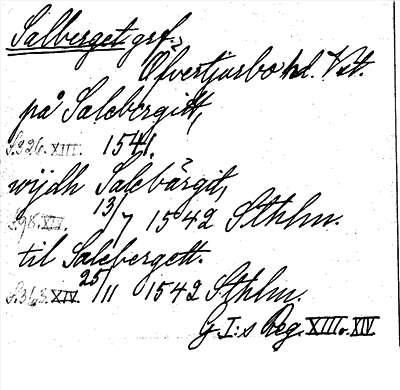 Salberget, grf.,
Öfvertjurbo hd. Vst.
på Salebergitt,
S. 326. XIII. 1541.
wijdh Salebärgit,
S. 98. XIV. 13/7 1542 Sthlm.
til Salebergett.
S. 363. XIV. 25/11 1542 Sthlm.
G. I:s Reg. XIII o. XIV.